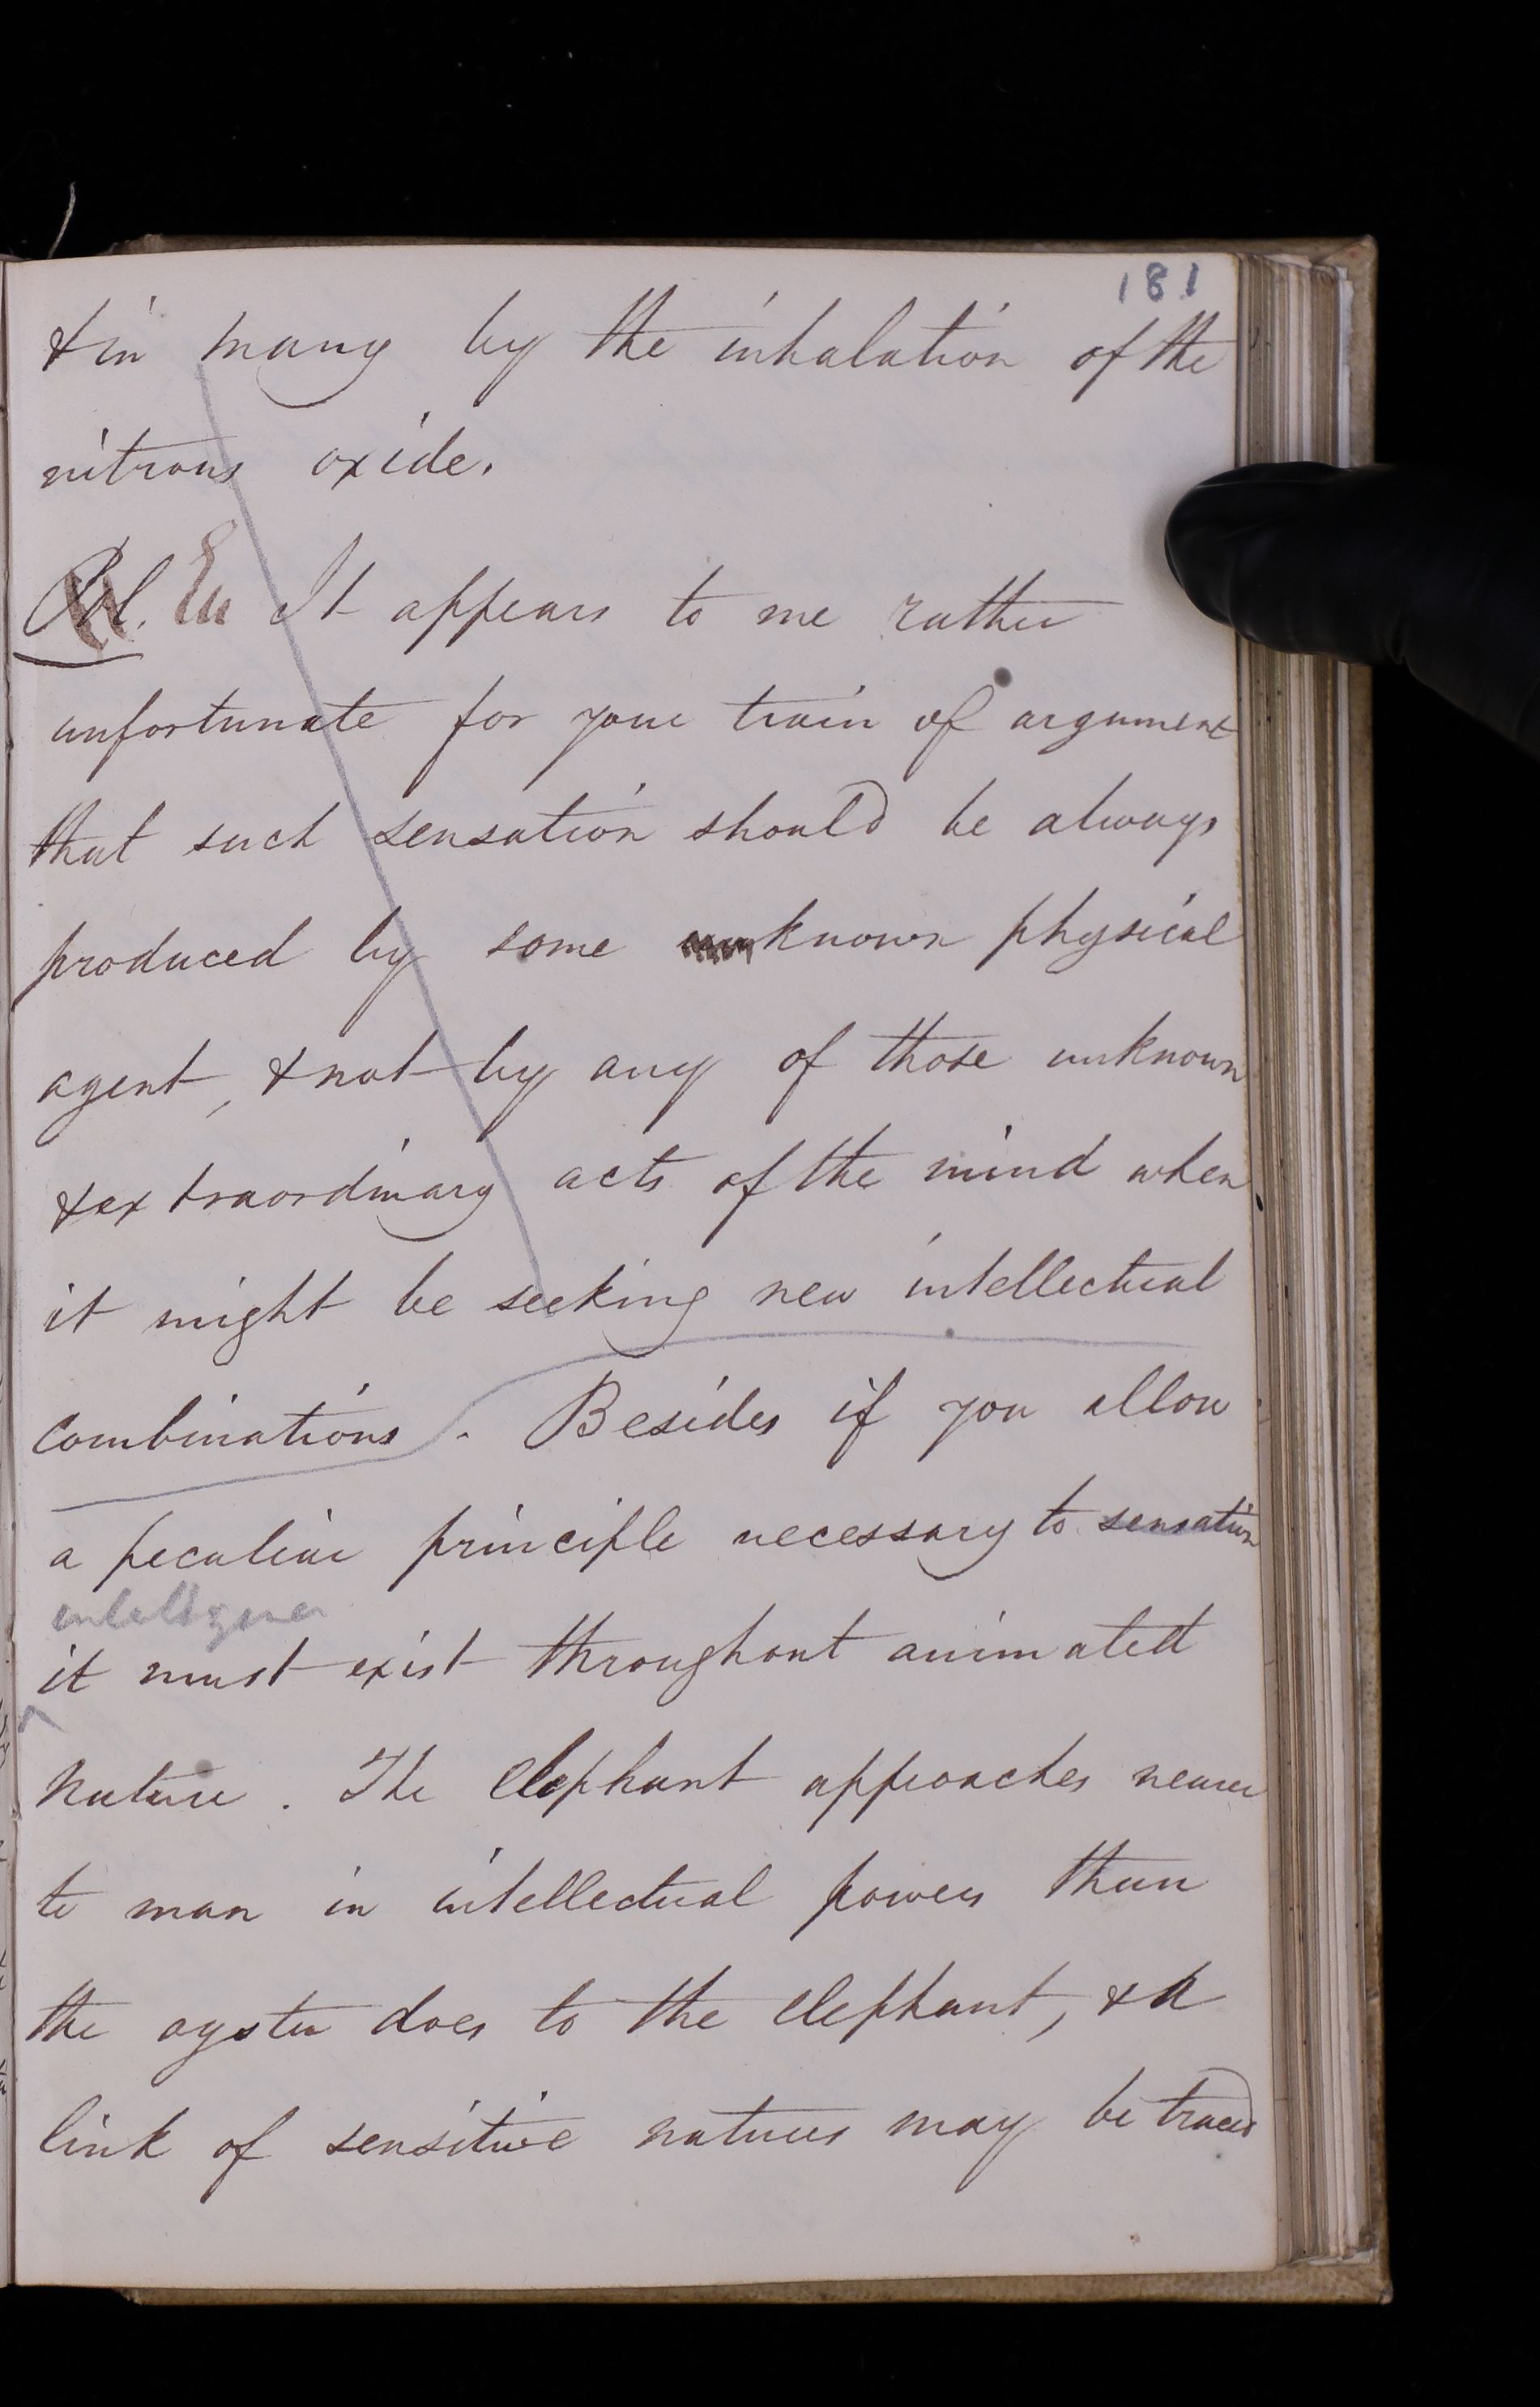 181
& in many by the inhalation of the
nitrous oxide.
Phil. Eu It appears to me rather
unfortunate for your train of argument
that such sensation should be always
produced by some known physical
agent, & not by any of those unknown
& extraordinary acts of the mind when
it might be seeking new intellectual
combinations. Besides if you allow
a peculiar principle necessary to sensation
intelligence
it must exist throughout animated
nature. The elephant approaches nearer
to man in intellectual powers than
the oyster does to the elephant, & a
link of sensitive natures may be traced